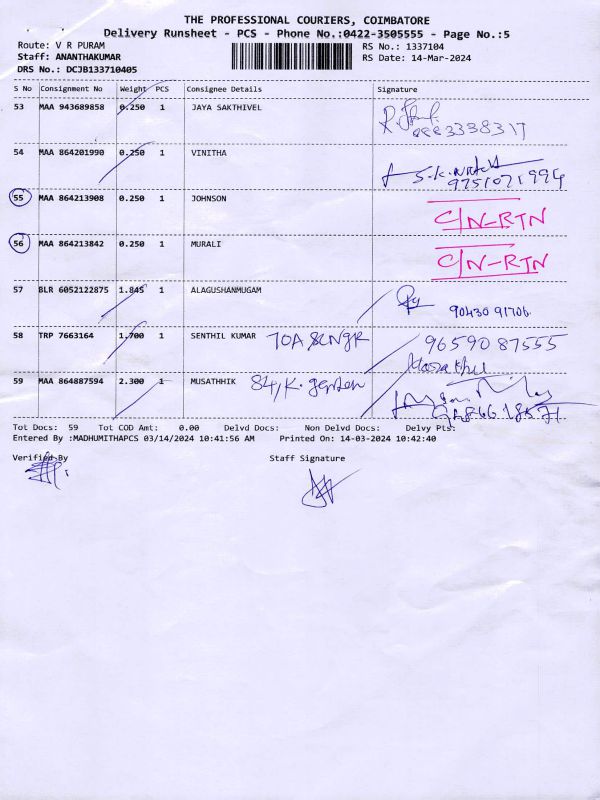 THE PROFESSIONAL COURIERS, COIMBATORE
Delivery Runsheet - PCS - Phone No.:0422-3505555 - Page No.:5
Route: V R PURAM
RS No.: 1337104
Staff: ANANTHAKUMAR
RS Date: 14-Mar-2024
DRS No.: DCJB133710405
S No Consignment No Weight PCS Consignee Details Signature
53 MAA 943689858 0.250 1 JAYA SAKTHIVEL
54 MAA 864201990 0.250 1 VINITHA
9751071994
55 MAA 864213908 0.250 1 JOHNSON C/N-RTN
56 MAA 864213842 0.250 1 MURALI C/N-RTN
57 BLR 6052122875 1.845 1 ALAGUSHANMUGAM
90430 91706
58 TRP 7663164 1.700 1 SENTHIL KUMAR 70A 96590 87555
59 MAA 864887594 2.300 1 MUSATHHIK 84/K.
Tot Docs: 59 Tot COD Amt: 0.00 Delvd Docs: Non Delvd Docs: Delvy Pts:
Entered By :MADHUMITHAPCS 03/14/2024 10:41:56 AM Printed On: 14-03-2024 10:42:40
Verified By Staff Signature